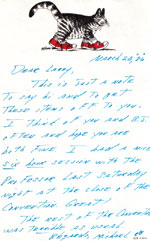 March 20, '76
Dear Larry,
This is just a note
to say be sure to get
these items off to you.
I think of you and O.I.
often and hope you are
both fine. I had a nice
six hour session with the
Pro Fessor last Saturday
night at the close of the
Convention. Great!
The rest of the Convention
was terrible as usual.
Regards, Michael